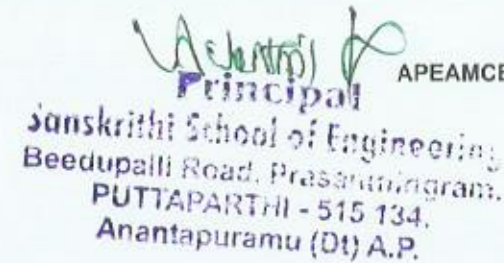 APEAMCE
Principal
Sanskrithi School of Engineering
Beedupalli Road, Prasanthinigram,
PUTTAPARTHI - 515 134.
Anantapuramu (Dt) A.P.